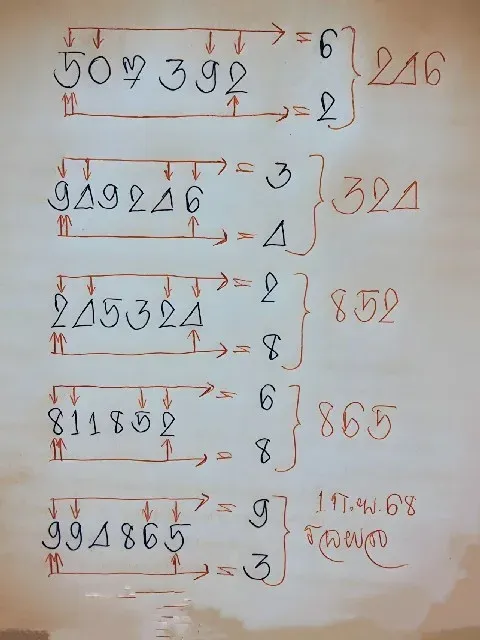 = 6
507392 246
= 2
= 3
949246 324
= 4
= 2
245324 852
= 8
= 6
811852 865
= 8
= 9
994865 1 ก.พ. 68
= 3